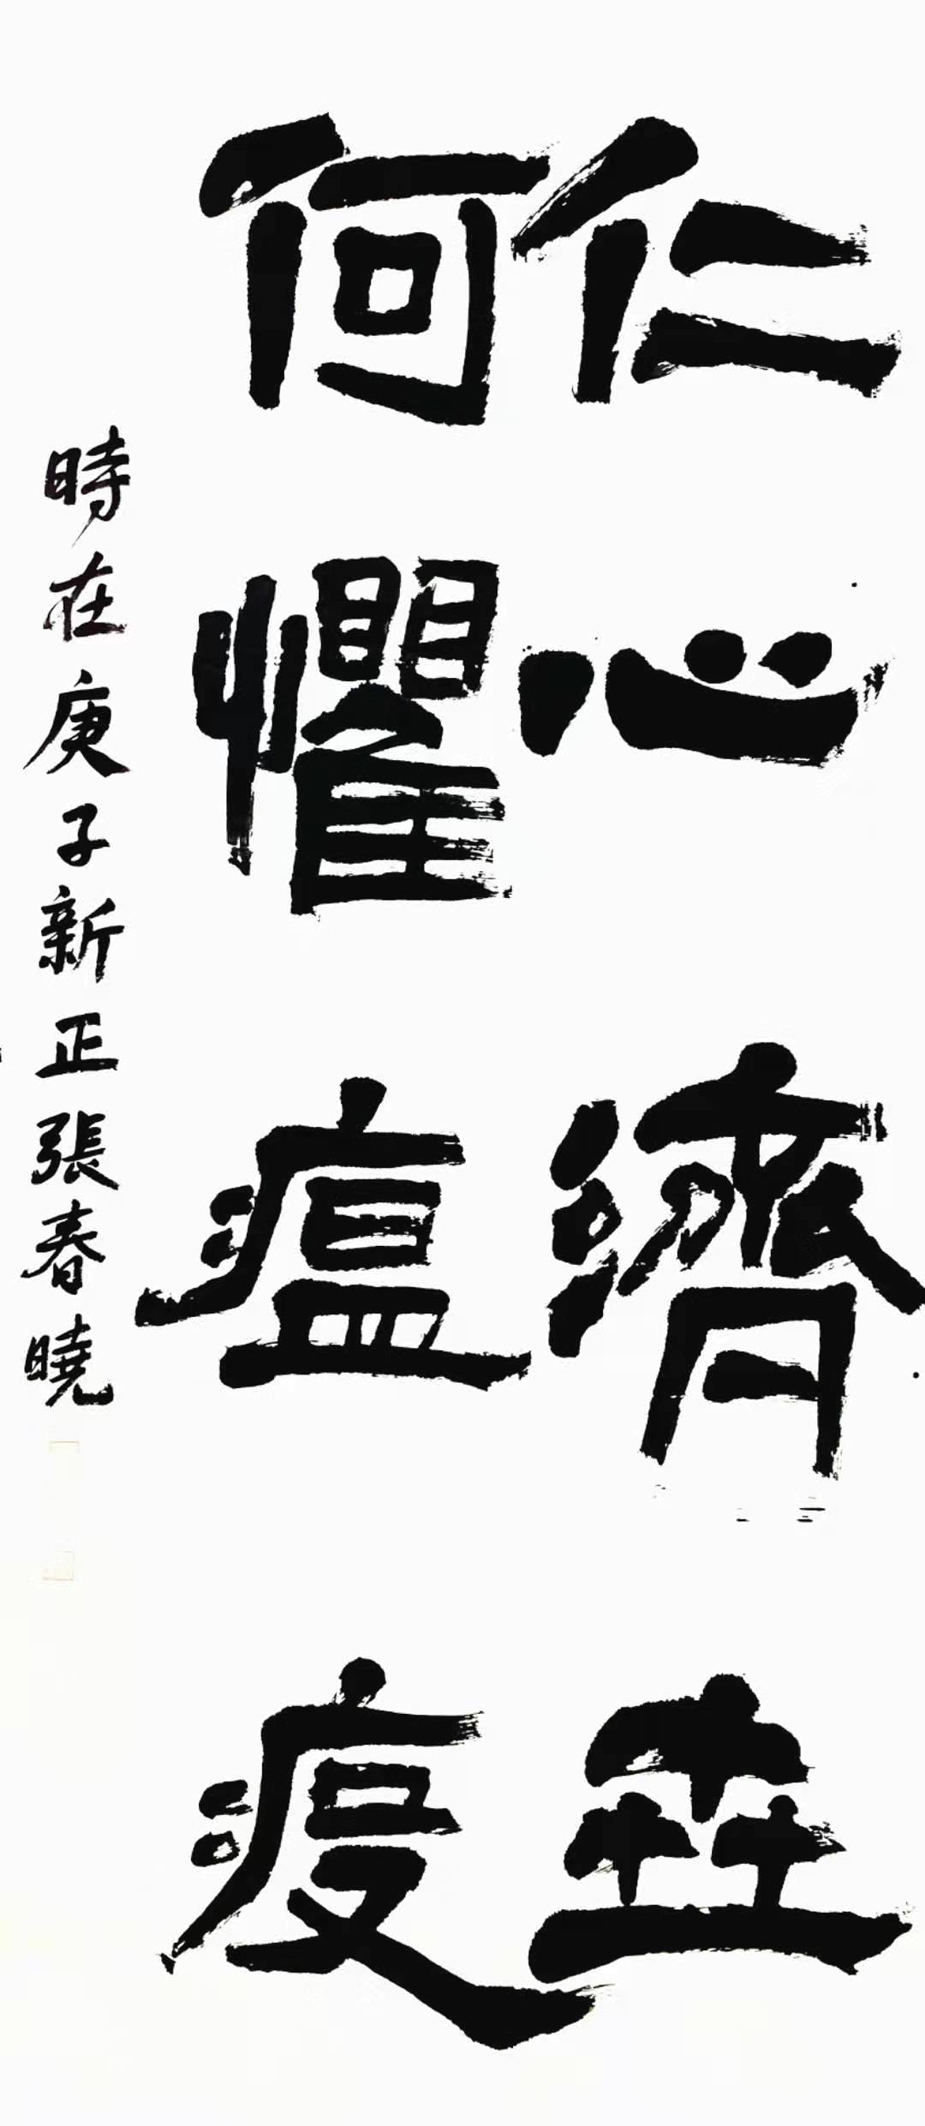 仁心濟卋
何懼瘟疫
時在庚子新正張春曉